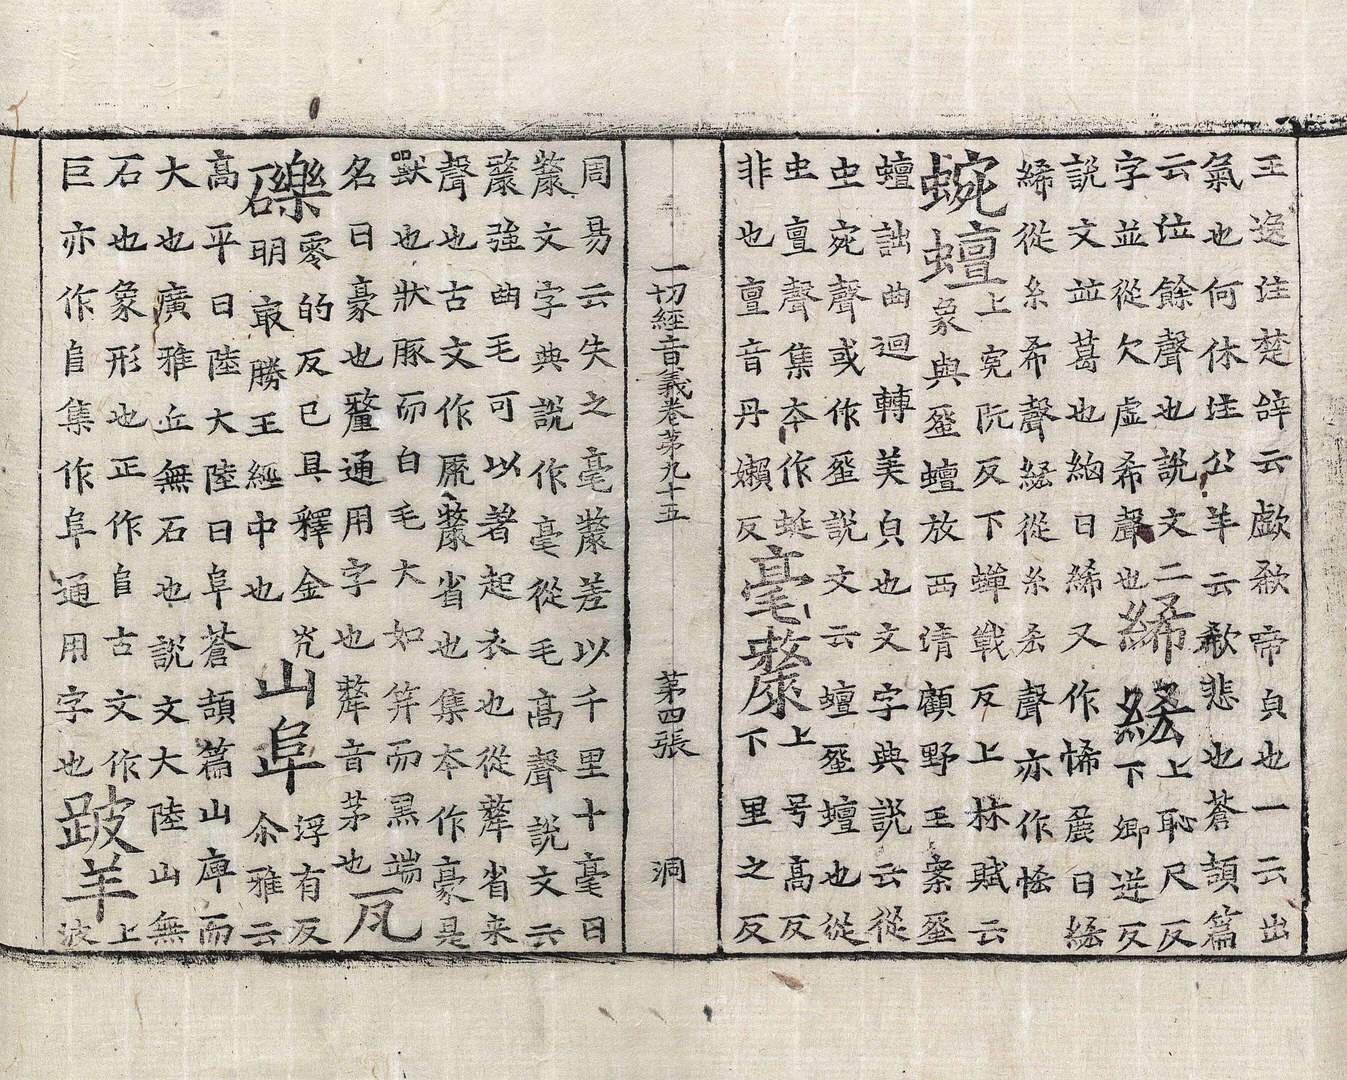 王逸注楚辞云歔欷啼皃也一云出
氣也何休注公羊云欷悲也蒼頡篇
云泣餘聲也說文二
字並從欠虛希聲也
絺綌
上恥尺反
下卿逆反
說文並葛也細曰絺又作悕麁曰綌
絺從糸希聲綌從糸谷聲亦作
蜿蟺
上寃阮反下蟬戰反上林賦云
象輿蜿蟺放西清顧野王案蜿
蟺詘曲迴轉美皃也文字典說云從
虫宛聲或作䖤說文云蟺䖤蟺也從
虫亶聲集本作蜒
非也亶音丹嬾反
毫氂
上号高反
下里之反
一切經音義卷第九十五 第四張 洞
周易云失之毫氂差以千里十毫曰
氂文字典說作毫從毛高聲說文云
氂強曲毛可以著起衣也從犛省来
聲也古文作氂省也集本作豪是
獸也狀豚而白毛大如笄而黑端
名曰豪也釐通用字也犛音茅也 瓦
礫
零的反已具釋金光
明最勝王經中也
山阜
浮有反
尒雅云
高平曰陸大陸曰阜蒼頡篇山庳而
大也廣雅丘無石也說文大陸山無
石也象形也正作𠂤古文作
巨亦作𠂤集作阜通用字也
跛羊
上
波